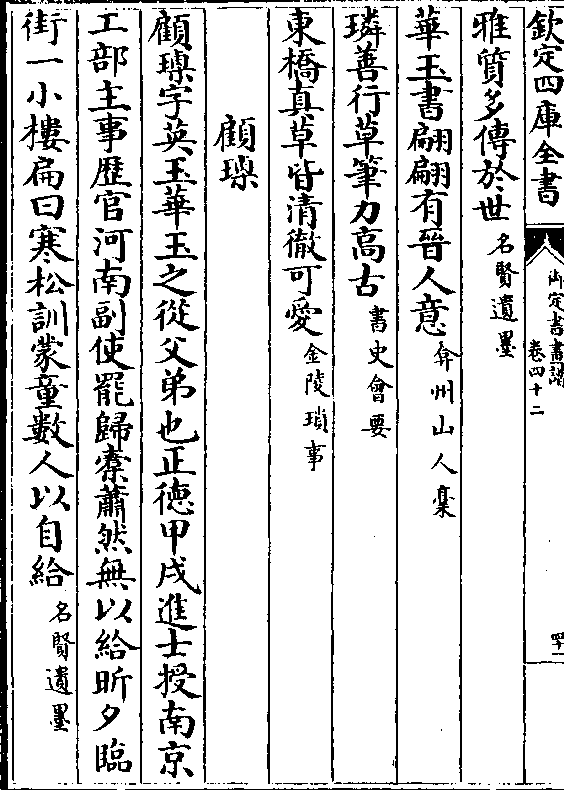 欽定四庫全書
御定書畫譜
卷四十二
四十一
雅質多傳於世名賢遺墨
華玉書翩翩有晉人意弇州山人稾
璘善行草筆力高古書史會要
東橋真草皆清徹可愛金陵瑣事
顧瑮
顧瑮字英玉華玉之從父弟也正德甲戌進士授南京
工部主事歴官河南副使罷歸橐蕭然無以給昕夕臨
街一小樓扁曰寒松訓蒙童數人以自給名賢遺墨